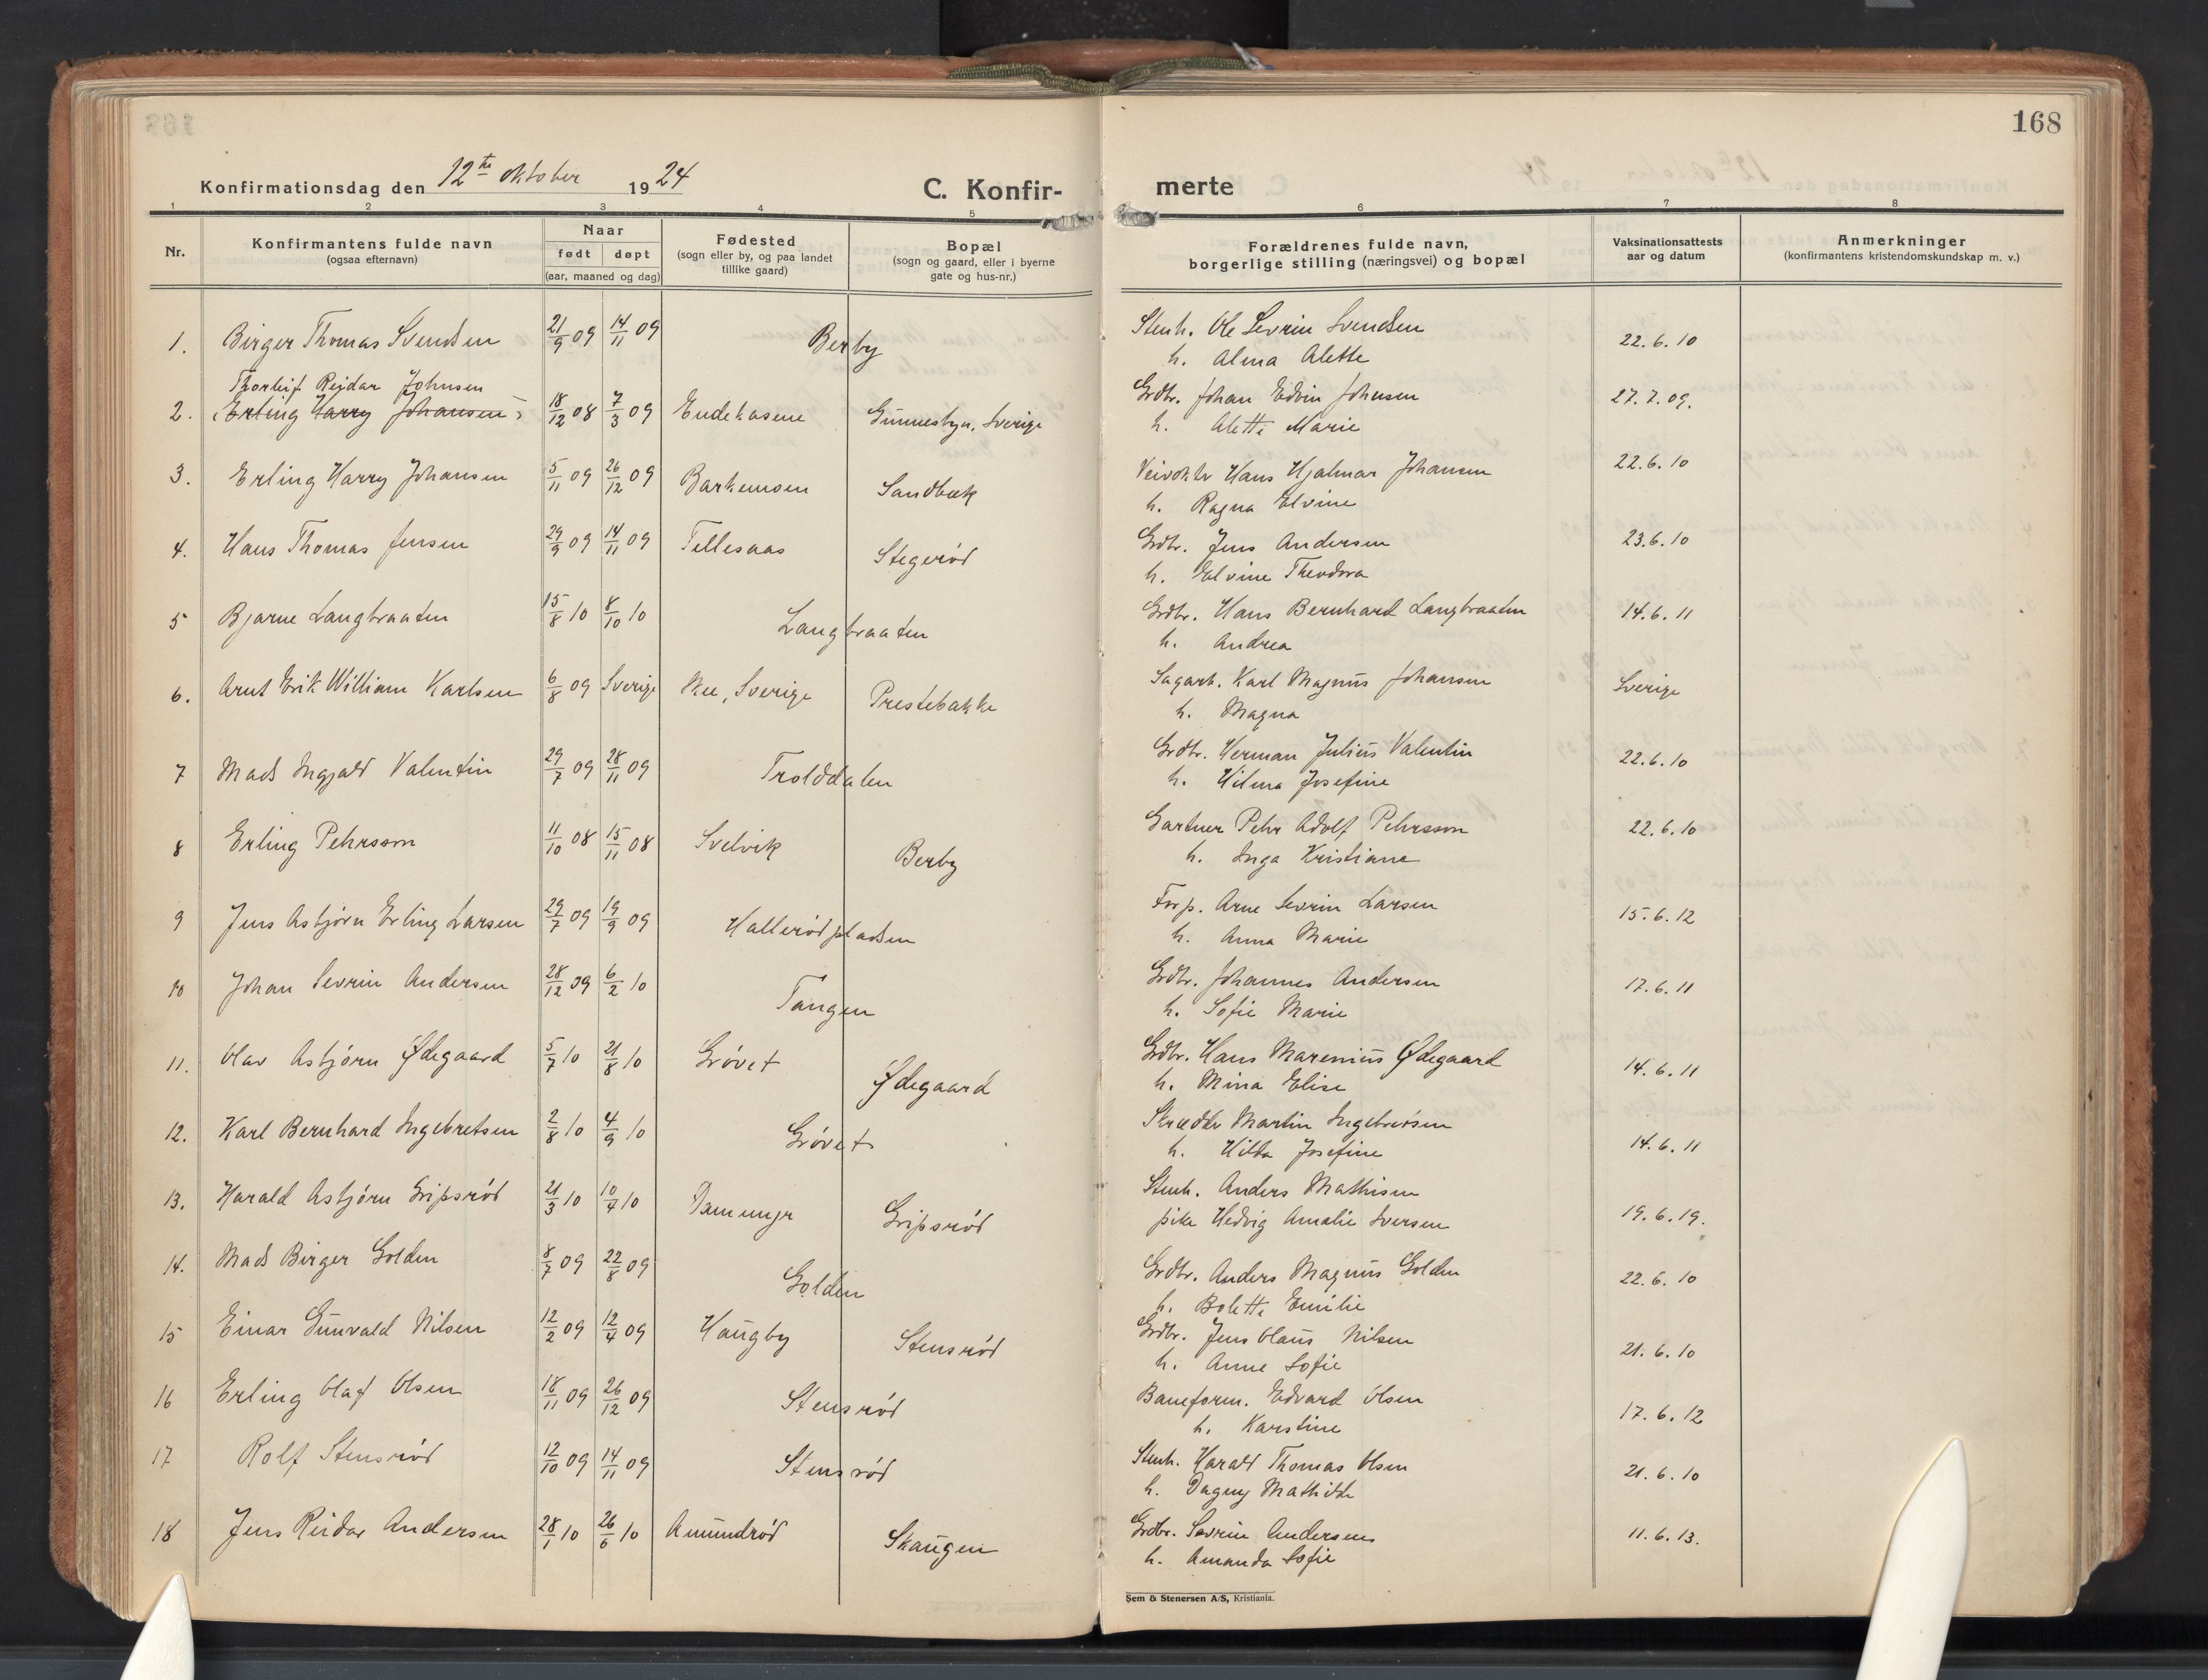 168
Konfirmationsdag den 12te oktober 1924
C. Konfirmerte
1 2 3 4 5 6 7 8
Nr. | Konfirmantens fulde navn (ogsaa efternavn) | Naar født døpt (aar, maaned og dag) | Fødested (sogn eller by, og paa landet tillike gaard) | Bopæl (sogn og gaard, eller i byerne gate og hus-nr.) | Forældrenes fulde navn, borgerlige stilling (næringsvei) og bopæl | Vaksinationsattests aar og datum | Anmerkninger (konfirmantens kristendomskundskap m. v.)
1. Birger Thomas Svendsen 21/9 09 14/11 09 Berby Stenh. Ole Sevrin Svendsen 22.6.10
h. Alma Alette
Thorleif Reidar Johnsen
2. (Erling Harry Johansen) 18/12 08 7/3 09 Endekasene Gunnesbyn, Sverige Grdbr. Johan Edvin Johnsen 27.7.09.
h. Alette Marie
3. Erling Harry Johansen 5/11 09 26/12 09 Sandbæk Veivokter Hans Hjalmar Johansen 22.6.10
h. Ragna Elvine
4. Hans Thomas Jensen 29/9 09 14/11 09 Tellesaas Stegerød Grdbr. Jens Andersen 23.6.10
h. Elvine Theodora
5 Bjarne Langbraaten 15/8 10 8/10 10 Langbraaten Grdbr. Hans Bernhard Langbraaten 14.6.11
h. Andrea
6. Arnt Erik William Karlsen 6/8 09 Sverige Nee, Sverige Prestebakke Sagarb. Karl Magnus Johansen Sverige
h. Magna
7 Mads Ingjald Valentin 29/7 09 28/11 09 Trolddalen Grdbr. Herman Julius Valentin 22.6.10
h. Hilma Josefine
8 Erling Pehrsson 11/10 08 15/11 08 Svelvik Berby Gartner Pehr Adolf Pehrsson 22.6.10
h. Inga Kristiane
9 Jens Asbjørn Erling Larsen 29/7 09 19/9 09 Hallerødpladsen Forp. Arne Sevrin Larsen 15.6.12
h. Anna Marie
10 Johan Sevrin Andersen 28/12 09 6/2 10 Tangen Grdbr. Johannes Andersen 17.6.11
h. Sofie Marie
11. Olav Asbjørn Ødegaard 5/7 10 21/8 10 Grøvet Ødegaard Grdbr. Hans Marenius Ødegaard 14.6.11
h. Mina Elise
12. Karl Bernhard Ingebretsen 2/8 10 4/9 10 Grøvet Skrædder Martin Ingebretsen 14.6.11
h. Hilda Josefine
13. Harald Asbjørn Gripsrød 21/3 10 10/4 10 Gripsrød Stenh. Anders Mathisen 19.6.19.
pike Hedvig Amalie Iversen
14. Mads Birger Golden 8/7 09 22/8 09 Golden Grdbr. Anders Magnus Golden 22.6.10
h. Bolette Emilie
15 Einar Gunvald Nilsen 12/2 09 12/4 09 Haugby Stensrød Grdbr. Jens Olaus Nilsen 21.6.10
h. Anne Sofie
16 Erling Olaf Olsen 18/11 09 26/12 09 Stensrød Baneform. Edvard Olsen 17.6.12
h. Karstine
17 Rolf Stensrød 12/10 09 14/11 09 Stensrød Stenh. Harald Thomas Olsen 21.6.10
h. Dagny Mathilde
18 Jens Reidar Andersen 28/1 10 26/6 10 Amundrød Skaugen Grdbr. Sevrin Andersen 11.6.13.
h. Amanda Sofie
Sem & Stenersen A/S, Kristiania.